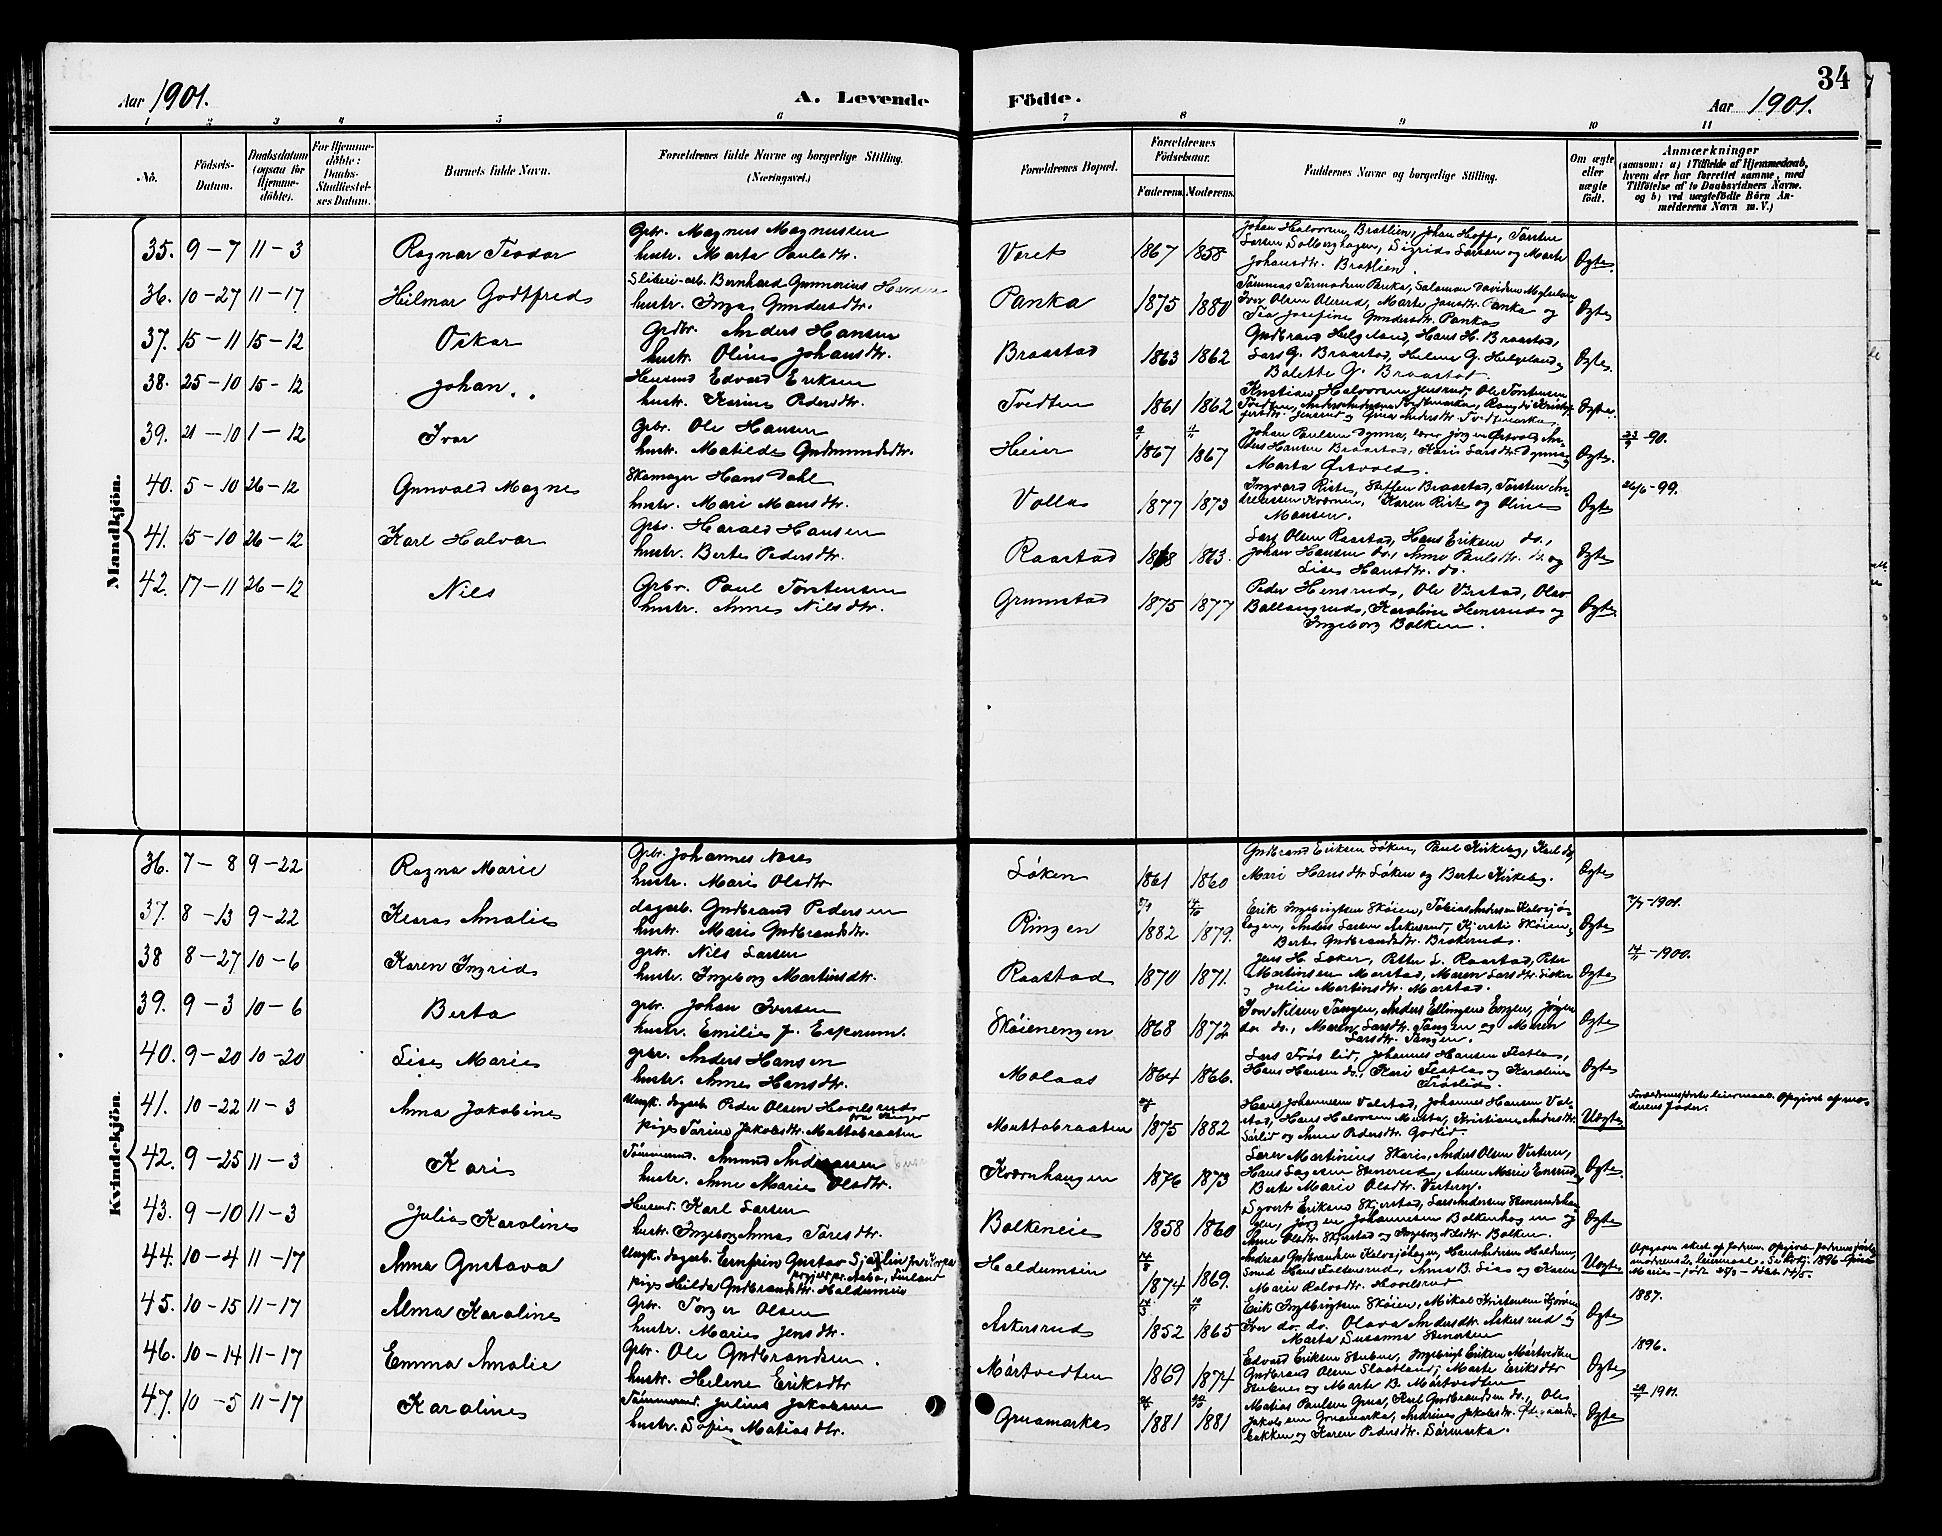 34
Aar 1901.
A. Levende
Födte.
Aar 1901.
1 2 3 4 5 6 7 8 9 10 11
No.
Födsels-Datum.
Daabsdatum (ogsaa for Hjemmedöbte).
For Hjemmedöbte: Daabs-Stadfæstelses Datum.
Barnets fulde Navn.
Forældrenes fulde Navne og borgerlige Stilling. (Næringsvei.)
Forældrenes Bopæl.
Forældrenes Födselsaar.
Faderens. Moderens.
Faddernes Navne og borgerlige Stilling.
Om ægte eller uægte födt.
Anmærkninger
(saasom: a) i Tilfælde af Hjemmedaab, hvem der har forrettet samme, med Tilföielse af to Daabsvidners Navne. og b) ved uægtefödte Börn Anmelderens Navn m. V.)
Mandkjön.
35. 9-7 11-3 Ragnar Teodor Grbr. Magnus Magnussen
hustr. Marta Paulsdtr. Voret 1867 1858 Johan Halvorsen Bratlien, Johan Hoff, Torsten
Larsen Solberghagen, Sigrid Larsen og Marte
Johansdtr. Bratlien. Ægte
36. 10-27 11-17 Hilmar Godtfred Sliberi-arb. Bernhard Gunnerius Hansen
hustr. Inga Gundersdtr. Panka 1875 1880
Iver Olsen Olerud, Marte Jonsdtr. Panka og
Tea Josefine Gundersdtr. Panka Ægte
37. 15-11 15-12 Oskar Grdbr. Anders Hansen
hustr. Oline Johansdtr. Braastad 1863 1862 Gudbrand Helgeland, Hans H. Braastad,
Lars G. Braastad, Helene G. Helgeland,
Balette G. Braastad. Ægte.
38. 25-10 15-12 Johan. Husmd Edvard Eriksen
hustr. Karine Pedersdtr. Tvedten 1861 1862 Kristian Halvorsen Jensrud, Ole Torstensen
Ægte.
39. 21-10 1-12 Ivar Grbr. Ole Hansen
hustr. Matilde Gudmundsdtr. Heier 1867 1867 Johan Paulsen Dynna, lærer Jörgen Østvold, An-
ders Hansen Braastad, Karis Larsdtr. Dynna og
Marta Østvold. Ægte. 23/9-90.
40. 5-10 26-12 Gunvald Magne Skomager Hans Dahl
hustr. Mari Mansdtr. Volla 1877 1873 Ingvard Riste, Steffen Braastad, Torsten An-
Karen Riste og Oline
Mansen. Ægte 26/6-99.
41. 15-10 26-12 Karl Halvar Grbr. Harald Hansen
hustr. Berte Pedersdtr. Raastad 1868 1863. Lars Olsen Raastad, Hans Eriksen do.,
Johan Hansen do., Anne Paulsdtr. do. og
Lise Hansdtr. do. Ægte
42. 17-11 26-12 Nils Grbr. Paul Torstensen
hustr. Anne Nilsdtr. Grumstad 1875 1877 Peder Hensrud, Ole Virstad, Olav
Ballangrud, Karoline Hensrud og
Ingeborg Bolken. Ægte.
Kvindekjön.
36. 7-8 9-22 Ragna Marie Grbr. Johannes Næss
hustr. Marie Olsdtr Søken 1861 1860 Gudbrand Eriksen Søken, Paul Kirkeby, Karl do,
Mari Hansdtr Søken og Berte Kirkeby. Ægte
37. 8-13 9-22 Klara Amalie dagarb. Gudbrand Pedersen
hustr. Marie Gudbrandsdtr. Ringen 1882 1879. Erik Ingebrigtsen Skøien, Tobias Andersen Kalvsjø-
hagen, Anders Larsen Askersrud, Kjersti Skøien,
Berte Gudbrandsdtr. Brokerud. Ægte 7/7-1901.
38 8-27 10-6 Karen Ingrid grbr. Nils Larsen
hustr. Ingeborg Martinsdtr. Raastad 1870 1871. Jens H. Søker, Petter L. Raastad, Peter
Martinsen Morstad, Maren Larsdtr. Søker
og Julie Martinsdtr. Morstad. Ægte -1900.
39. 9-3 10-6 Berta grbr. Johan Iversen
hustr. Emilie J. Esperum. Skøienengen 1868 1872 Jon Nilsen Tangen, Anders Ellingsen Engen, Jørgen
do do., Maren Larsdtr. Tangen og Maren
Larsdtr. Tangen. Ægte
40. 9-20 10-20 Lise Marie grbr. Anders Hansen
hustr. Anne Hansdtr. Molaas 1864 1866. Lars Frøslid, Johannes Hansen Flatla,
Hans Hansen do., Kari Flatla og Karoline
Frøslid. Ægte
41. 10-22 11-3 Anna Jakobine Ungk. dagarb. Peder Olsen Hovelsrud
pige Torine Jakobsdtr. Mattobraaten Mattobraaten 1875 1882 Hans Johannesen Volstad, Johannes Hansen Vol-
stad, Hans Halvorsen Morstad, Kristiane Andersdtr.
Sørlid og Anne Pedersdtr. Godlid. Uægte Forældrenes første leiermaal. Opgivet af mo-
derens fader.
42. 9-25 11-3 Kari Tømmermd. Amund Andreassen
hustr. Anne Marie Olsdtr. Kværnhaugen 1876 1873 Søren Martinius Skari, Anders Olsen Vestern,
Hans Lagesen Stenerud, Anne Marie Ensrud,
Berte Marie Olsdtr. Vestern. Ægte
43. 9-10 11-3 Julie Karoline Husmd. Karl Larsen
hustr. Ingeborg Anna Toresdtr. Bolkeneie 1858 1860 Syvert Eriksen Skjerstad, Lars Andersen Stenerudshau-
gen, Jørgen Johannesen Bolkenhagen og
Anne Olsdtr. Skjerstad og Ingeborg Nilsdtr. Bolken. Ægte
44. 10-4 11-17 Anna Gustava Ungk. dagarb. Ernfrin Gustav
pige Hilda Gudbrandsdtr. Haldumeie Haldumeie 1874 1869. Andreas Gudbrandsen Kalvsjøhagen, Hans Andersen Haldum,
Anna B. Lia og Karen
Marie Hovelsrud Uægte
45. 10-15 11-17 Alma Karoline Grbr. Torger Olsen
hustr. Marie Jensdtr. Askersrud 1852 1865 Erik Ingebrigtsen Skøien, Mikal Kristensen
Iver do. do. Olava Andersdtr. Askersrud og
Marta Susanna Stenersen Ægte 1887.
46. 10-14 11-17 Emma Amalie Grbr. Ole Gudbrandsen.
hustr. Helene Eriksdtr Mårtvedten 1869 1874 Edvard Eriksen Stubne, Ingebrigt Eriksen Mårtvedten
Gudbrand Olsen Slaatland, Marte Eriksdtr
Stubne og Marte B. Mårtvedten Ægte 1896.
47. 10-5 11-17 Karoline Tømmermd. Julius Jakobsen
hustr. Sofie Matiasdtr. Gruamarka 1881 1881 Matias Paulsen Grua, Karl Gudbrandsen do., Ole
Jakobsen Gruamarka, Andrine Jakobsdtr. Ødegaards-
bakken og Karen Pedersdtr. Sørmarka. Ægte -1901.